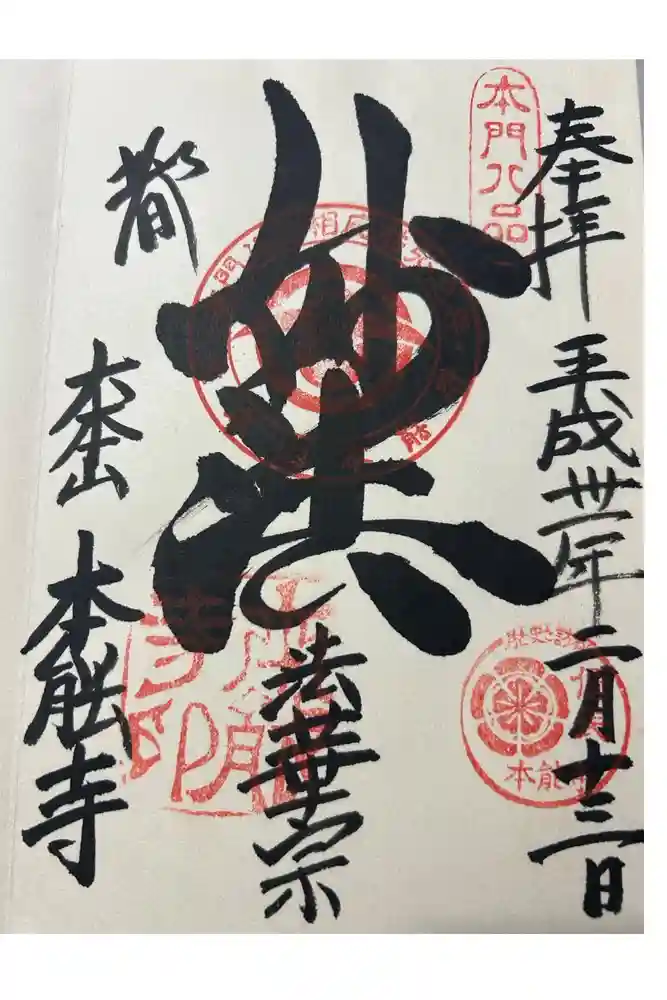 奉拝 平成卅一年二月十三日
本門八品
妙法
法華宗
都
大本山 本能寺